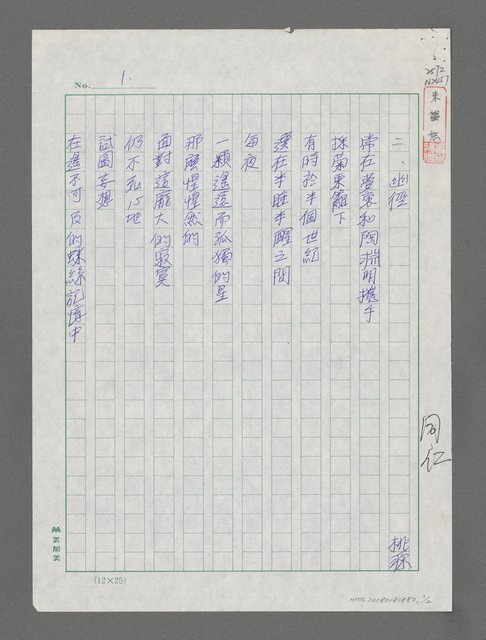 No. 1.
朱學恕
二、幽徑
常在夢裏和陶淵明攜手
採菊東籬下
有時於半個世紀
在半睡半醒之間
每夜
一顆遙遠而孤獨的星
那麼惺惺然的
面對這龐大的寂寞
仍不死心地
試圖妄想
在遙不可及的蛛絲記憶中
同仁
(12×25)
NMTL20080181880, 1/2